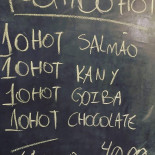 10HOT SALMÃO
10HOT KANY
10HOT GOIBA
10HOT CHOCOLATE